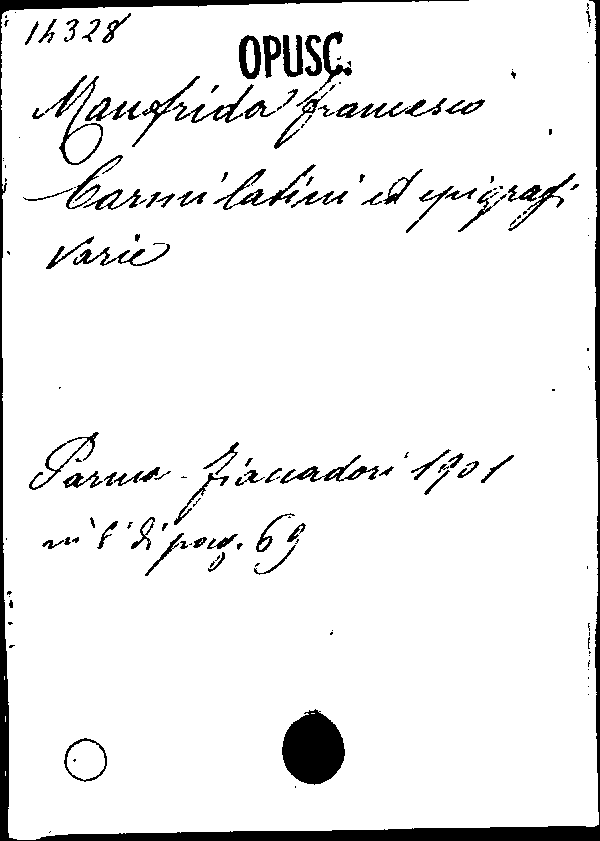 14328
OPUSC.
Manfrida Francesco
Carmi latini ed epigrafi
varie
Parma - Fiaccadori 1901
in 8° di pag. 69